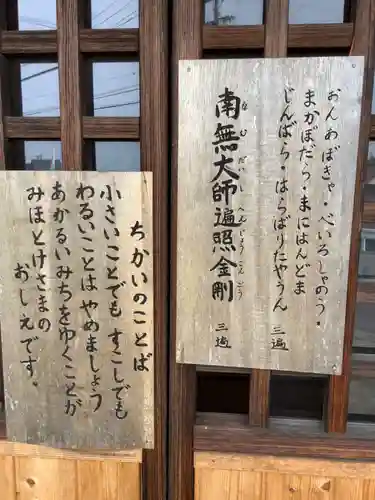 おんあぼぎゃ・べいろしゃのう・
まかぼだら・まにはんどま
じんばら・はらばりたやうん 三遍
なむ だいし へんじょう こんごう
南無大師遍照金剛 三遍
ちかいのことば
小さいことでも すこしでも
わるいことは やめましょう
あかるいみちをゆくことが
みほとけさまの
おしえです。